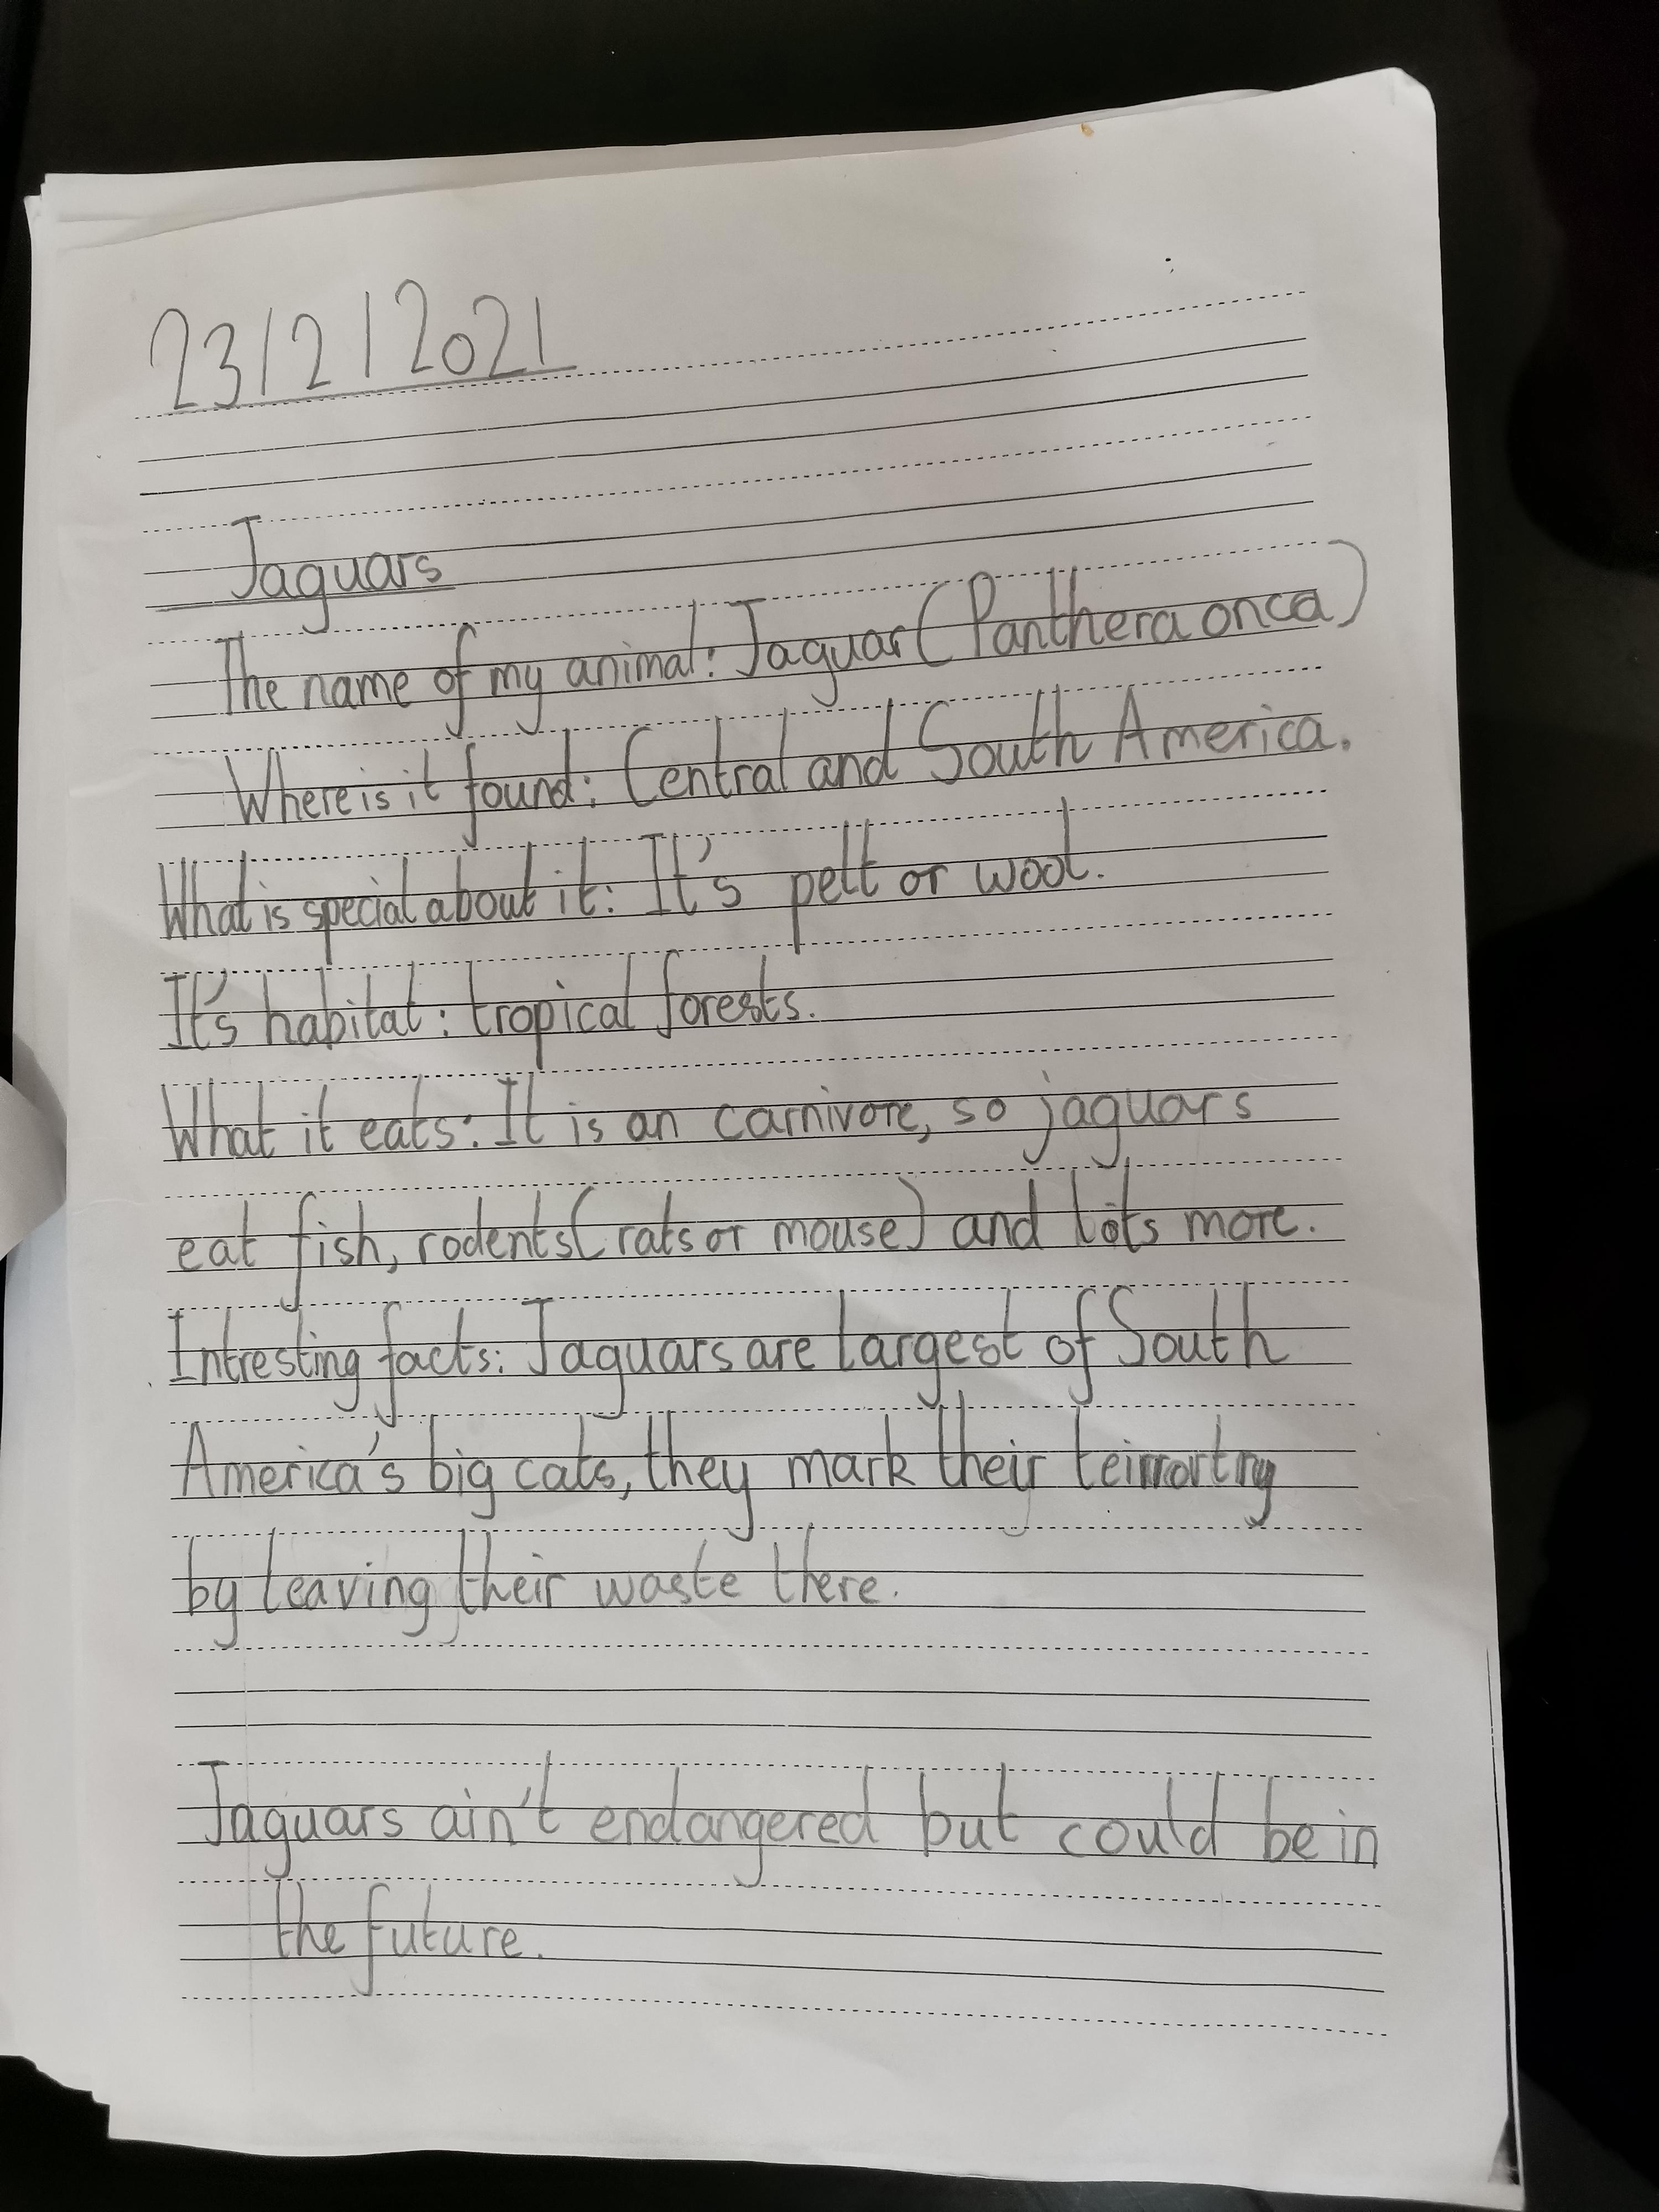 23/2/2021
Jaguars
The name of my animal: Jaguar (Panthera onca)
Where is it found: Central and South America.
What is special about it: It's pelt or wool.
It's habitat: tropical forests.
What it eats: It is an carnivore, so jaguars
eat fish, rodents (rats or mouse) and lots more.
Intresting facts: Jaguars are largest of South
America's big cats, they mark their
by leaving their waste there.
Jaguars ain't endangered but could be in
the future.